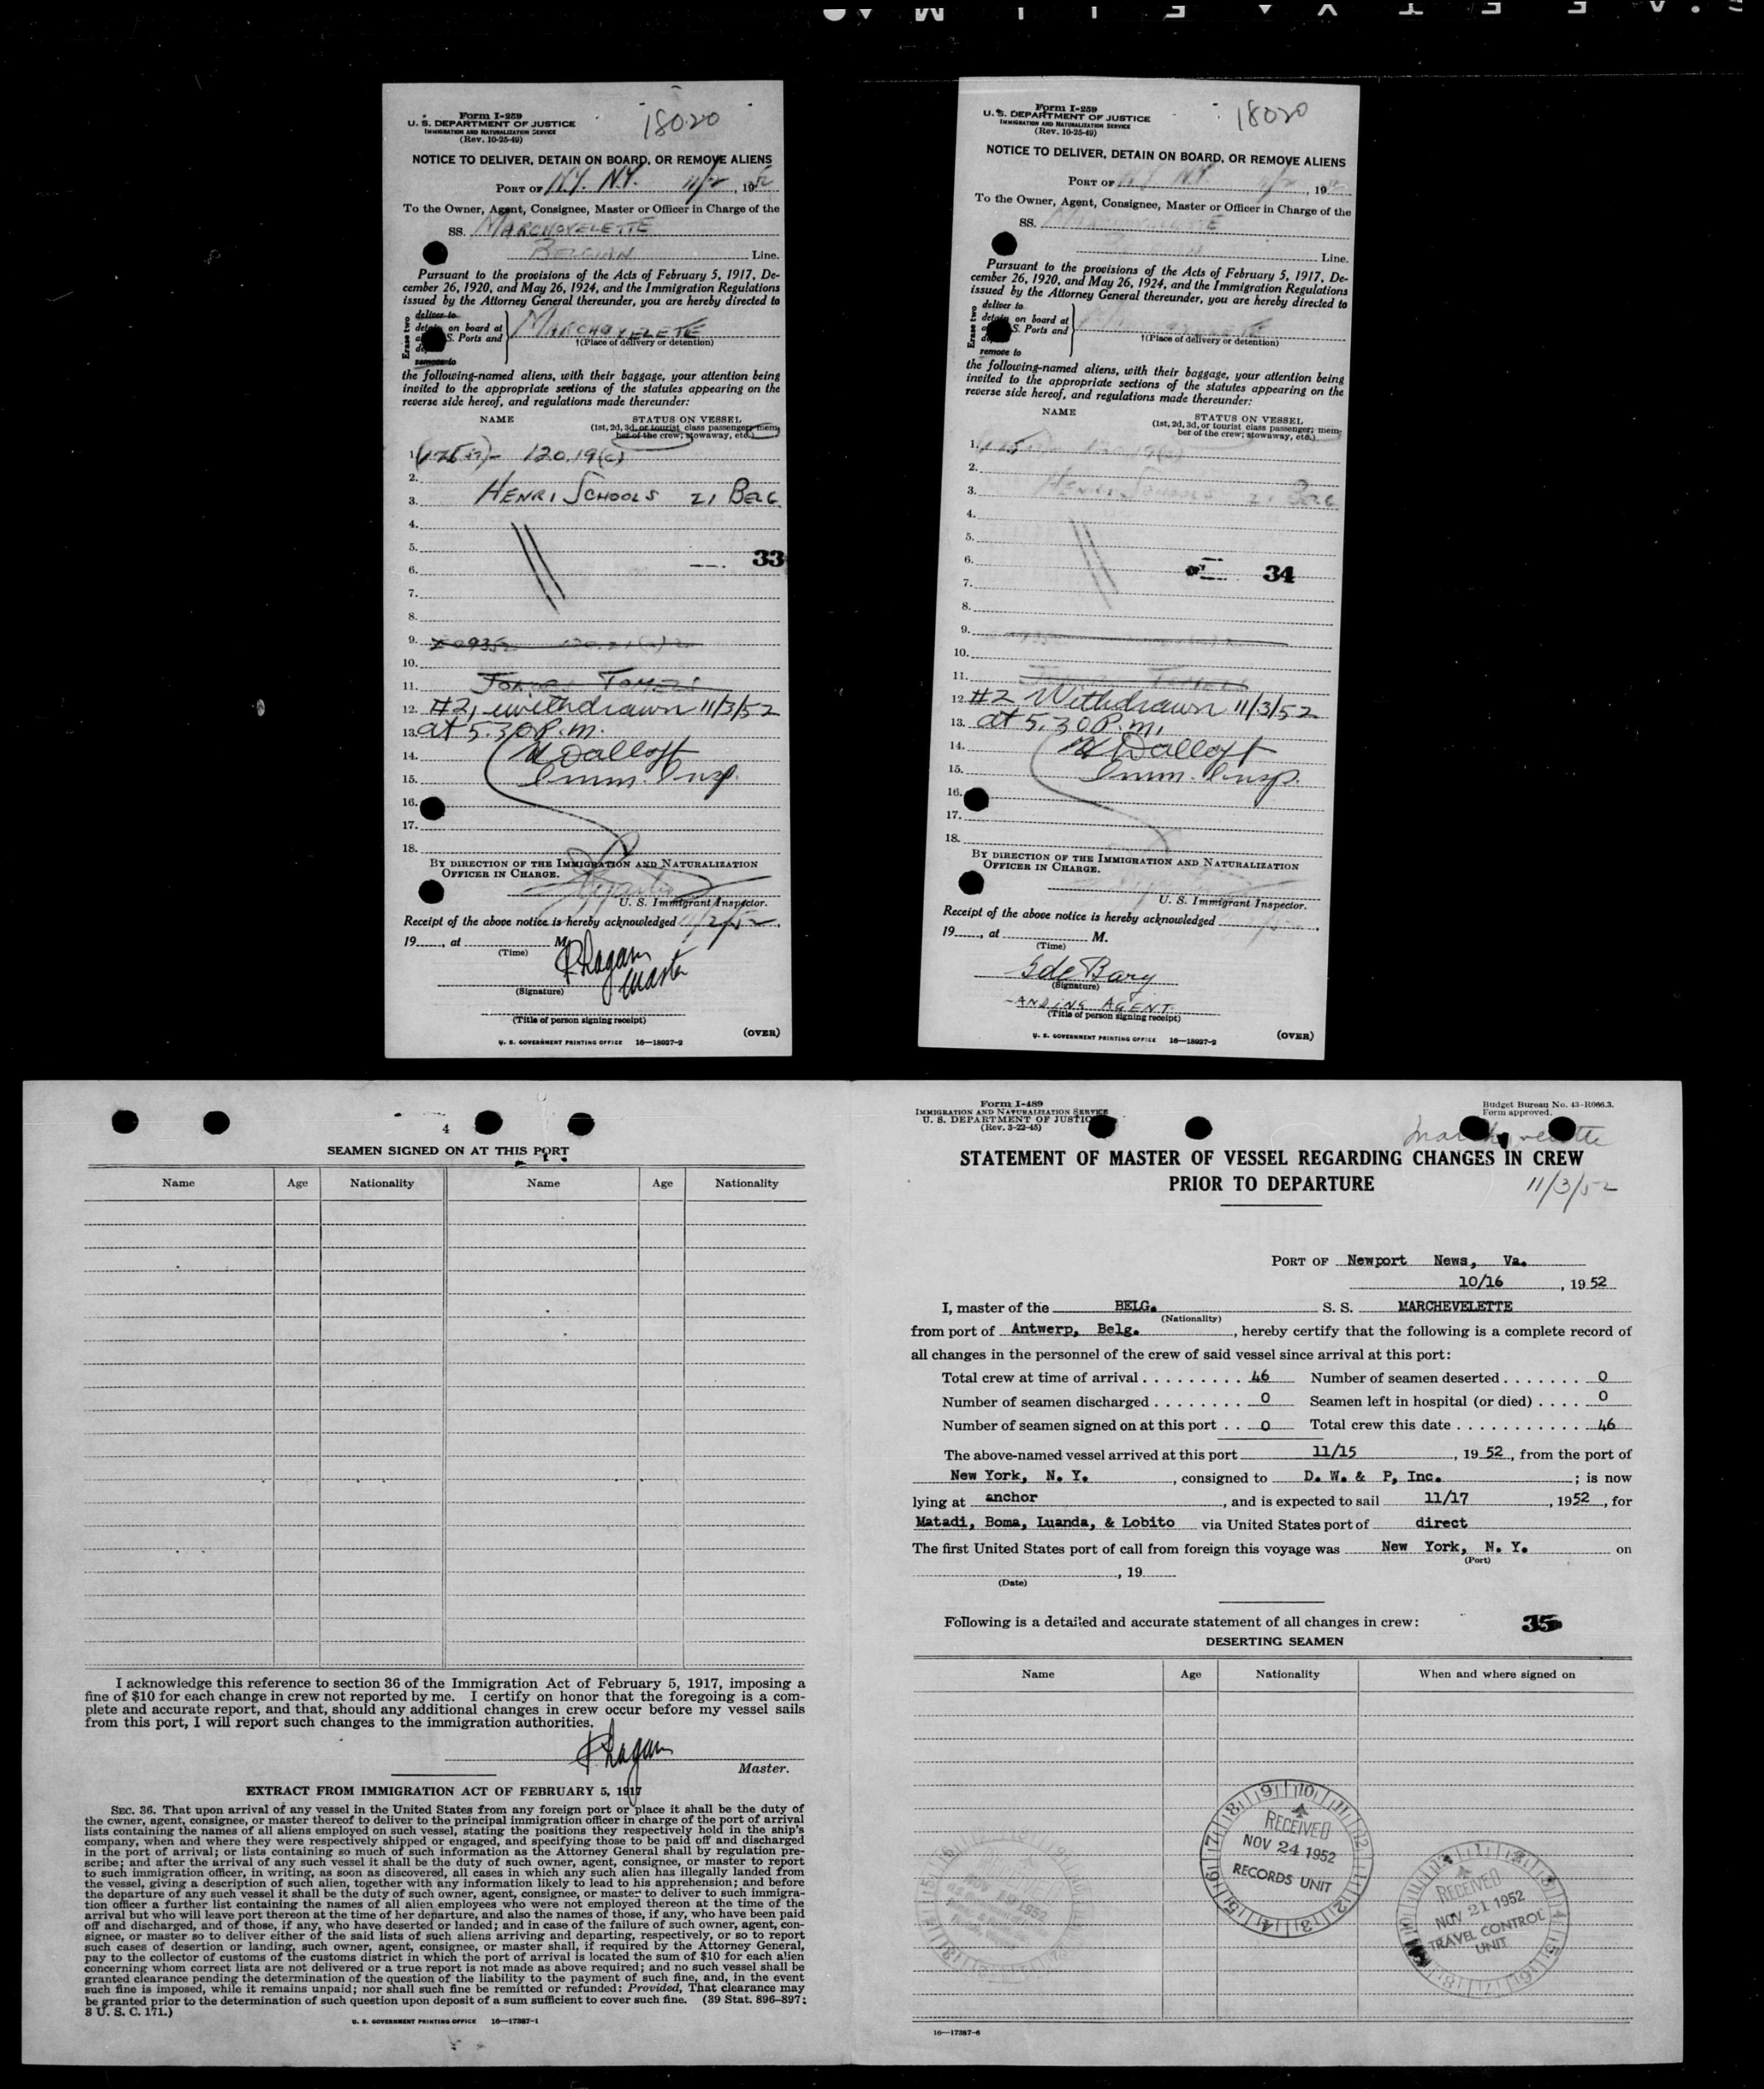 Form I-259
U. S. DEPARTMENT OF JUSTICE
IMMIGRATION AND NATURALIZATION SERVICE
(Rev. 10-25-49)
18020
NOTICE TO DELIVER, DETAIN ON BOARD, OR REMOVE ALIENS
PORT OF N.Y. N.Y. 11/2, 1952
To the Owner, Agent, Consignee, Master or Officer in Charge of the
SS. MARCHOVELETTE
BELGIAN Line.
Pursuant to the provisions of the Acts of February 5, 1917, De-
cember 26, 1920, and May 26, 1924, and the Immigration Regulations
issued by the Attorney General thereunder, you are hereby directed to
Erase two
deliver to
detain on board at
S. Ports and
remove to
MARCHOVELETTE
†(Place of delivery or detention)
the following-named aliens, with their baggage, your attention being
invited to the appropriate sections of the statutes appearing on the
reverse side hereof, and regulations made thereunder:
NAME STATUS ON VESSEL
(1st, 2d, 3d, or tourist class passenger; mem-
ber of the crew; stowaway, etc.)
1. 120.19(c)
2.
3. HENRI SCHOOLS 21 BELG
4.
5.
33
6.
7.
8.
9.
10.
11. TOMELI
12. #2, withdrawn 11/3/52
13. at 5.30 P.m.
14. Dalloft
15. Imm. Insp.
16.
17.
18.
BY DIRECTION OF THE IMMIGRATION AND NATURALIZATION
OFFICER IN CHARGE.
U. S. Immigrant Inspector.
Receipt of the above notice is hereby acknowledged 11/2/52,
19____, at ____ M.
(Time)
Master
(Signature)
(Title of person signing receipt)
(OVER)
U. S. GOVERNMENT PRINTING OFFICE 16—18027-2
Form I-259
U. S. DEPARTMENT OF JUSTICE
IMMIGRATION AND NATURALIZATION SERVICE
(Rev. 10-25-49)
18020
NOTICE TO DELIVER, DETAIN ON BOARD, OR REMOVE ALIENS
PORT OF N.Y. N.Y. 11/2, 19
To the Owner, Agent, Consignee, Master or Officer in Charge of the
SS.
Line.
Pursuant to the provisions of the Acts of February 5, 1917, De-
cember 26, 1920, and May 26, 1924, and the Immigration Regulations
issued by the Attorney General thereunder, you are hereby directed to
Erase two
deliver to
detain on board at
S. Ports and
remove to
†(Place of delivery or detention)
the following-named aliens, with their baggage, your attention being
invited to the appropriate sections of the statutes appearing on the
reverse side hereof, and regulations made thereunder:
NAME STATUS ON VESSEL
(1st, 2d, 3d, or tourist class passenger; mem-
ber of the crew; stowaway, etc.)
1. 120.19(c)
2.
3. HENRI SCHOOLS 21 BELG
4.
5.
6. 34
7.
8.
9.
10.
11. TOMELI
12. #2 Withdrawn 11/3/52
13. at 5.30 P.m.
14. Dalloft
15. Imm. Insp.
16.
17.
18.
BY DIRECTION OF THE IMMIGRATION AND NATURALIZATION
OFFICER IN CHARGE.
U. S. Immigrant Inspector.
Receipt of the above notice is hereby acknowledged
19____, at ____ M.
(Time)
G de Bary
(Signature)
ANDING AGENT
(Title of person signing receipt)
(OVER)
U. S. GOVERNMENT PRINTING OFFICE 16—18027-2
4
SEAMEN SIGNED ON AT THIS PORT
Name Age Nationality Name Age Nationality
I acknowledge this reference to section 36 of the Immigration Act of February 5, 1917, imposing a
fine of $10 for each change in crew not reported by me. I certify on honor that the foregoing is a com-
plete and accurate report, and that, should any additional changes in crew occur before my vessel sails
from this port, I will report such changes to the immigration authorities.
Master.
EXTRACT FROM IMMIGRATION ACT OF FEBRUARY 5, 1917
SEC. 36. That upon arrival of any vessel in the United States from any foreign port or place it shall be the duty of
the owner, agent, consignee, or master thereof to deliver to the principal immigration officer in charge of the port of arrival
lists containing the names of all aliens employed on such vessel, stating the positions they respectively hold in the ship's
company, when and where they were respectively shipped or engaged, and specifying those to be paid off and discharged
in the port of arrival; or lists containing so much of such information as the Attorney General shall by regulation pre-
scribe; and after the arrival of any such vessel it shall be the duty of such owner, agent, consignee, or master to report
to such immigration officer, in writing, as soon as discovered, all cases in which any such alien has illegally landed from
the vessel, giving a description of such alien, together with any information likely to lead to his apprehension; and before
the departure of any such vessel it shall be the duty of such owner, agent, consignee, or master to deliver to such immigra-
tion officer a further list containing the names of all alien employees who were not employed thereon at the time of the
arrival but who will leave port thereon at the time of her departure, and also the names of those, if any, who have been paid
off and discharged, and of those, if any, who have deserted or landed; and in case of the failure of such owner, agent, con-
signee, or master so to deliver either of the said lists of such aliens arriving and departing, respectively, or so to report
such cases of desertion or landing, such owner, agent, consignee, or master shall, if required by the Attorney General,
pay to the collector of customs of the customs district in which the port of arrival is located the sum of $10 for each alien
concerning whom correct lists are not delivered or a true report is not made as above required; and no such vessel shall be
granted clearance pending the determination of the question of the liability to the payment of such fine, and, in the event
such fine is imposed, while it remains unpaid; nor shall such fine be remitted or refunded: Provided, That clearance may
be granted prior to the determination of such question upon deposit of a sum sufficient to cover such fine. (39 Stat. 896–897;
8 U. S. C. 171.)
U. S. GOVERNMENT PRINTING OFFICE 16—17387-1
Form I-489
IMMIGRATION AND NATURALIZATION SERVICE
U. S. DEPARTMENT OF JUSTICE
(Rev. 3-22-45)
Budget Bureau No. 43-R066.3.
Form approved.
STATEMENT OF MASTER OF VESSEL REGARDING CHANGES IN CREW
PRIOR TO DEPARTURE
11/3/52
PORT OF Newport News, Va.
10/16, 1952
I, master of the BELG. S. S. MARCHEVELETTE
(Nationality)
from port of Antwerp, Belg., hereby certify that the following is a complete record of
all changes in the personnel of the crew of said vessel since arrival at this port:
Total crew at time of arrival . . . . . . . . . 46 Number of seamen deserted . . . . . . . 0
Number of seamen discharged . . . . . . . . 0 Seamen left in hospital (or died) . . . . 0
Number of seamen signed on at this port . . 0 Total crew this date . . . . . . . . . . . 46
The above-named vessel arrived at this port 11/15, 1952, from the port of
New York, N. Y., consigned to D. W. & P, Inc.; is now
lying at anchor, and is expected to sail 11/17, 1952, for
Matadi, Boma, Luanda, & Lobito via United States port of direct
The first United States port of call from foreign this voyage was New York, N. Y. on
(Port)
, 19
(Date)
Following is a detailed and accurate statement of all changes in crew:
35
DESERTING SEAMEN
Name Age Nationality When and where signed on
RECEIVED
NOV 24 1952
RECORDS UNIT
RECEIVED
NOV 21 1952
TRAVEL CONTROL
UNIT
NOV 19 1952
16—17387-6